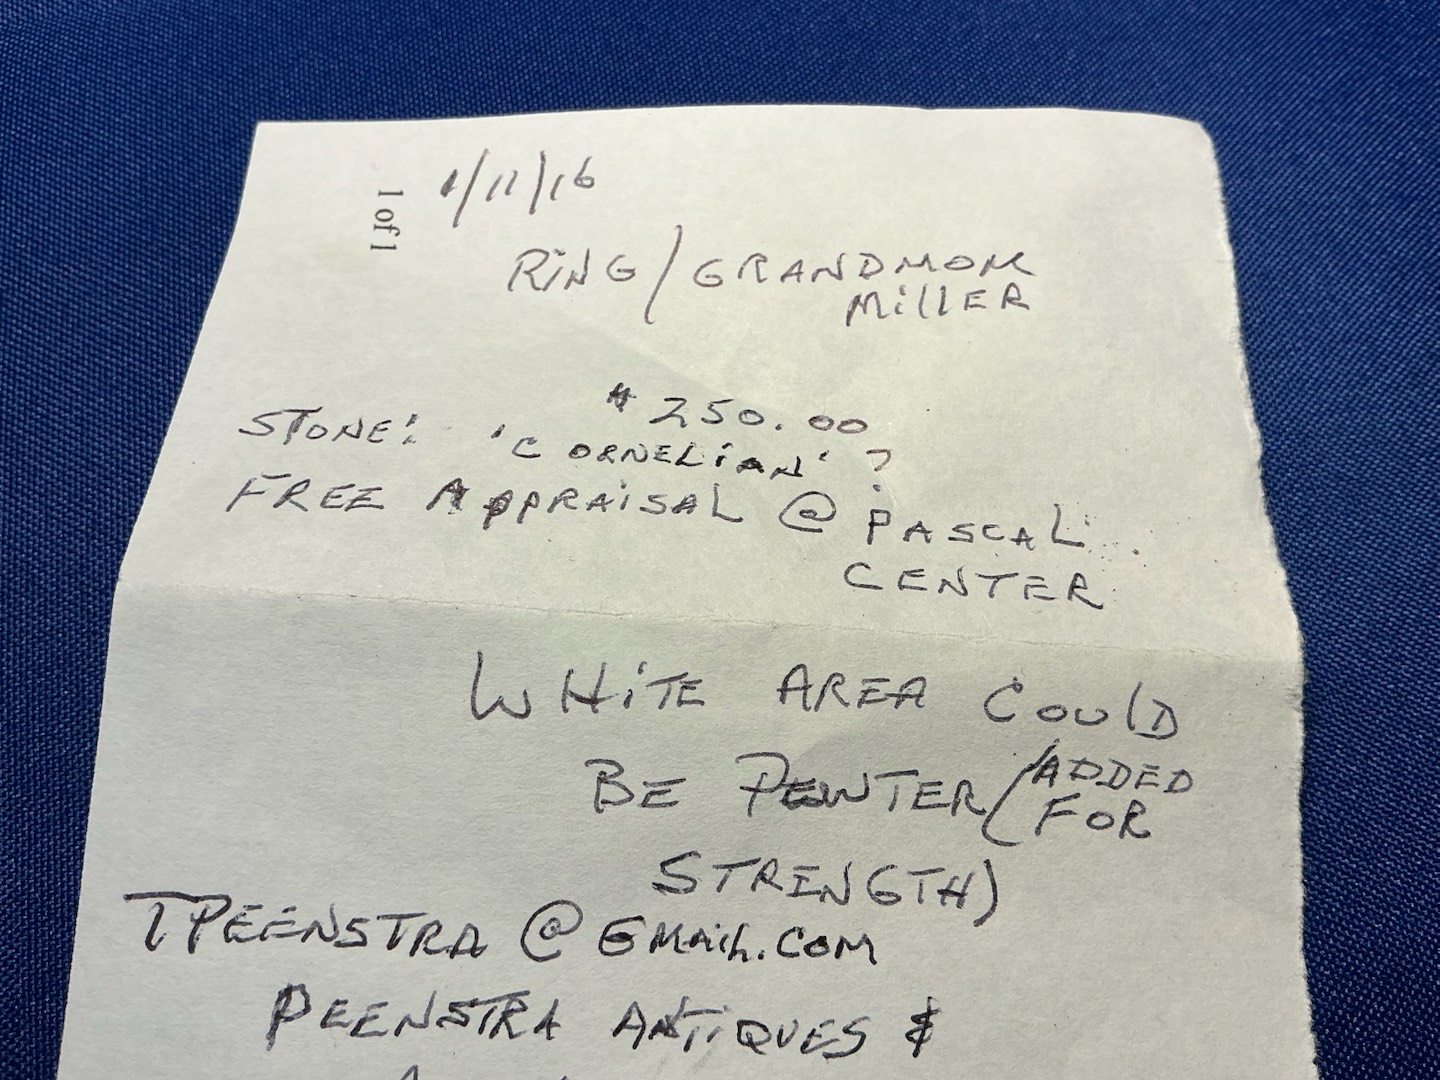 1 of 1
1/11/16
RING/GRANDMOM
MILLER
$250.00
STONE: 'CORNELIAN' ?
FREE APPRAISAL @ PASCAL
CENTER
WHITE AREA COULD
BE PEWTER (ADDED
FOR
STRENGTH)
TPEENSTRA@GMAIL.COM
PEENSTRA ANTIQUES &